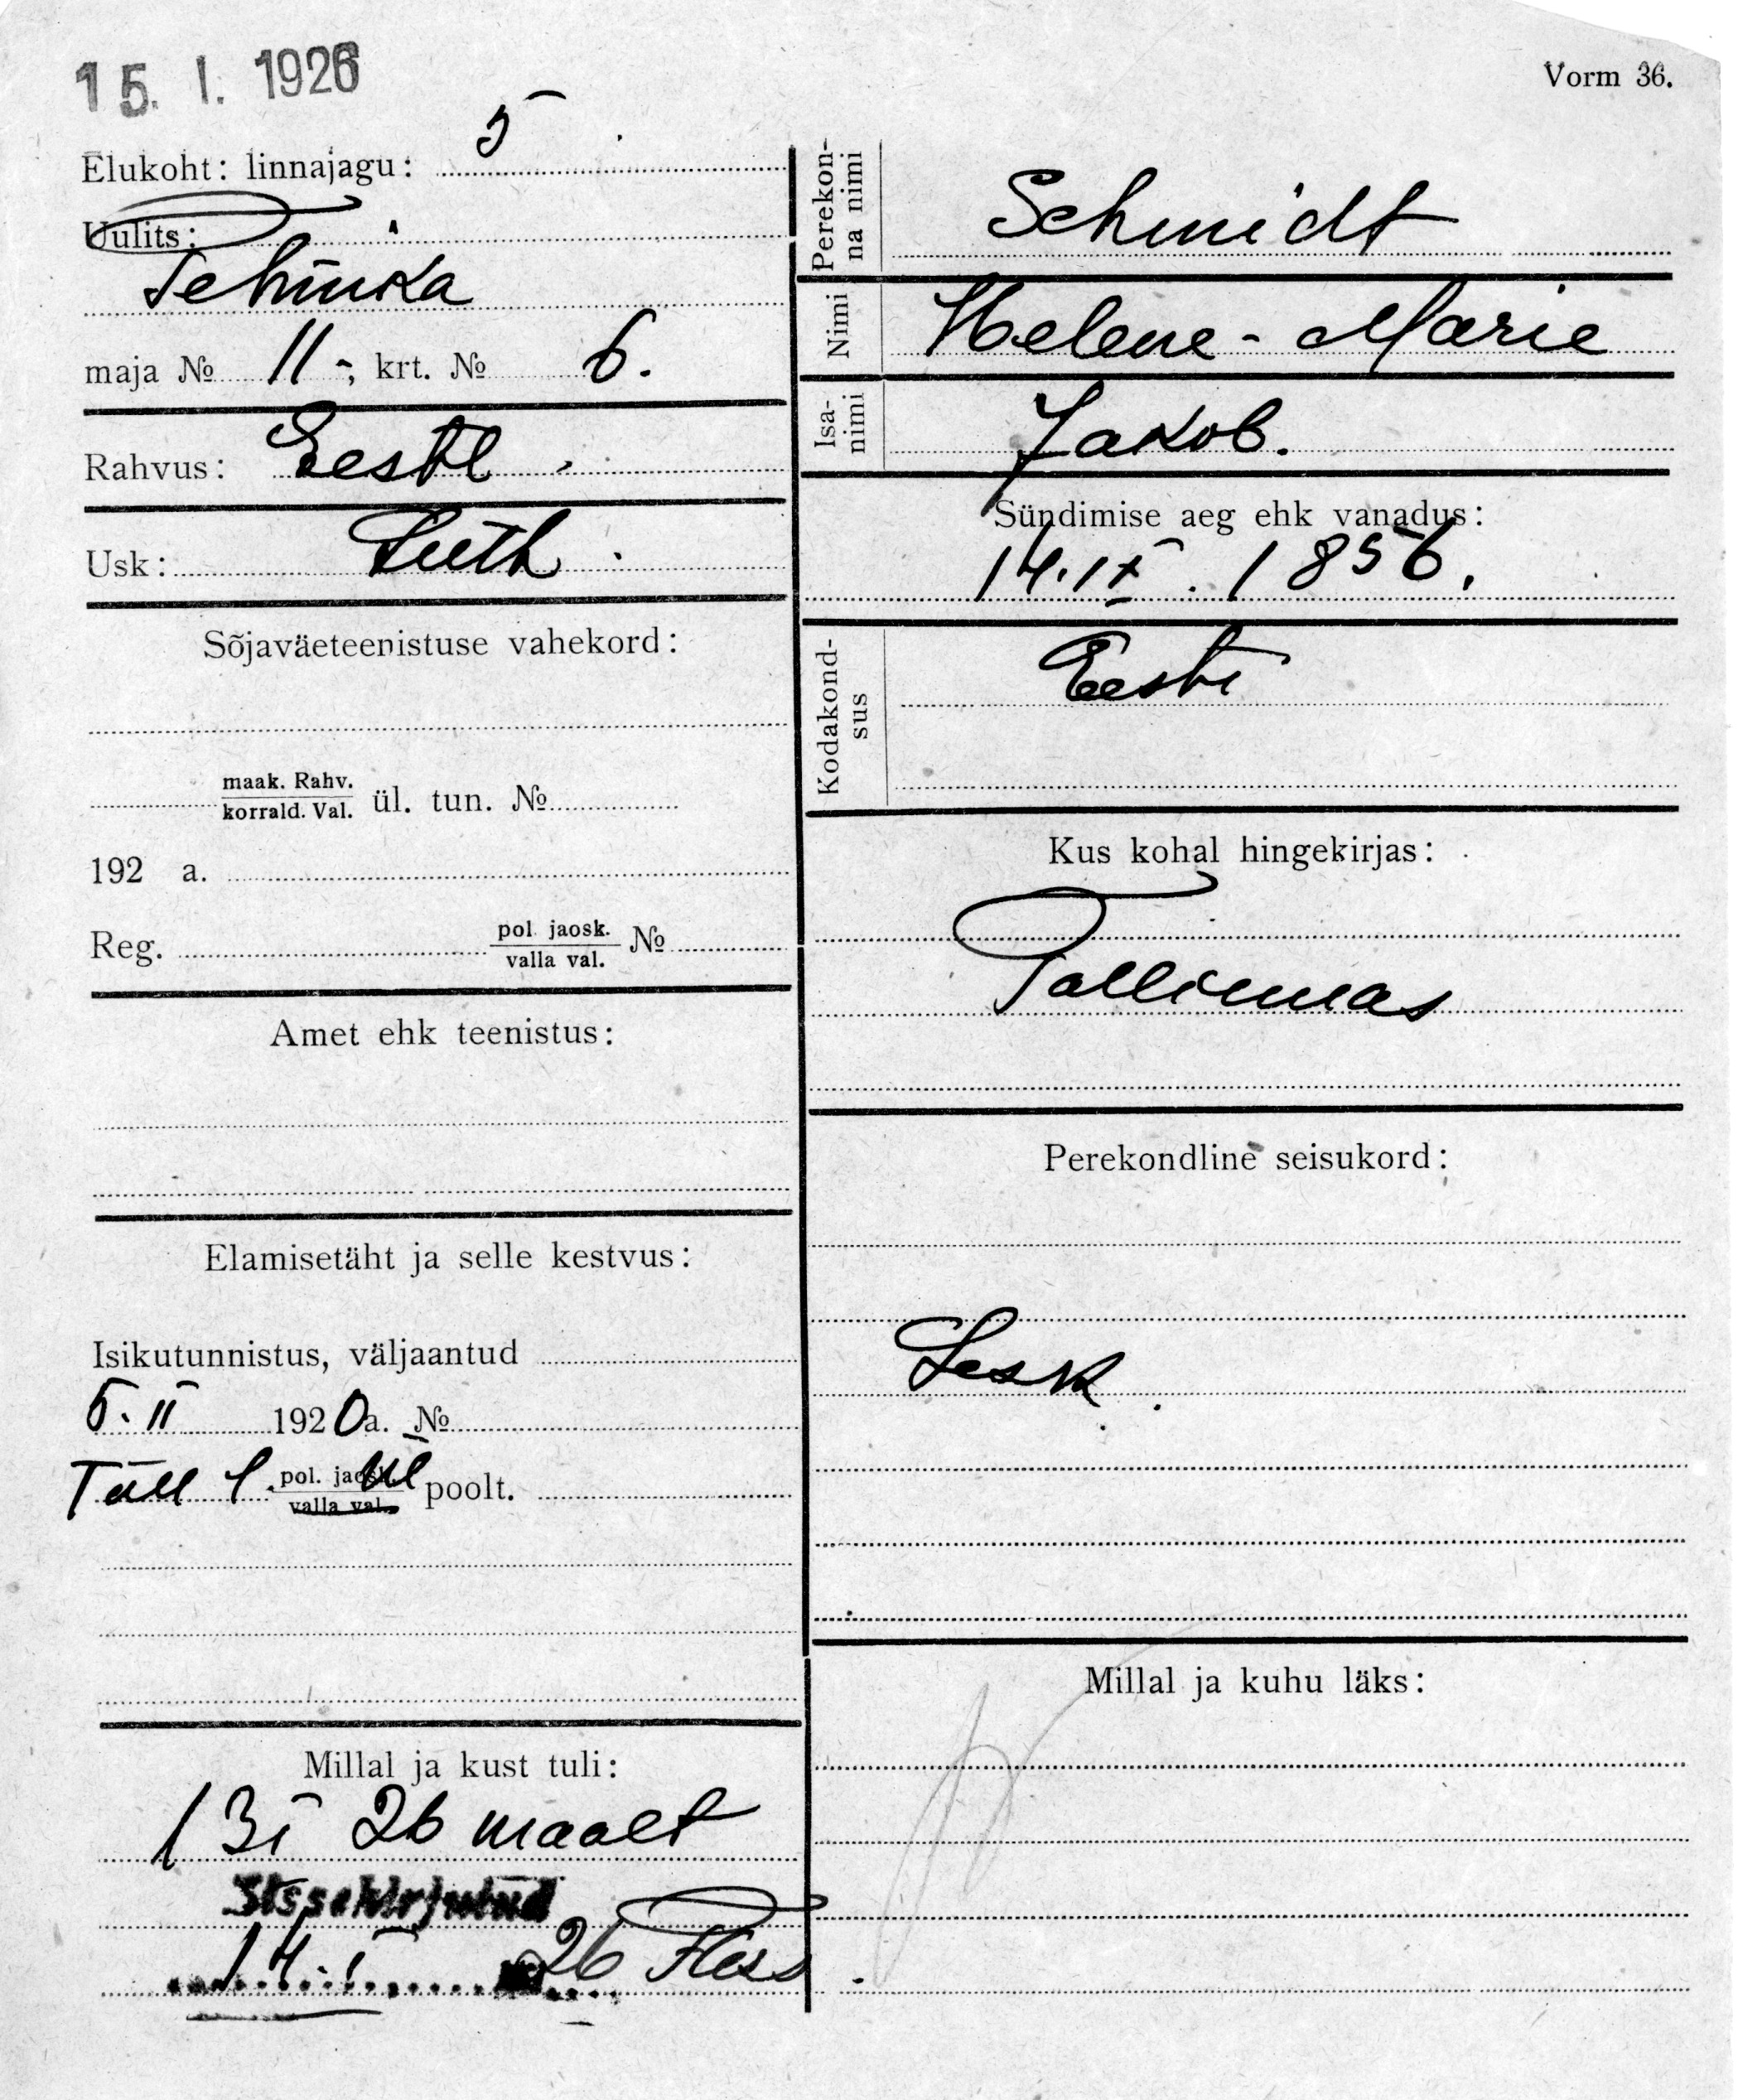 15. I. 1926
Vorm 36.
Elukoht: linnajagu: 5
Uulits:
Tehnika
maja № 11-, krt. № 6.
Rahvus: Eestl.
Usk: Luth.
Sõjaväeteenistuse vahekord:
maak. Rahv.
korrald. Val. ül. tun. №
192 a.
Reg. pol. jaosk. №
valla val.
Amet ehk teenistus:
Elamisetäht ja selle kestvus:
Isikutunnistus, väljaantud
5. II 1920 a. №
Tall 1. pol. jaosk. ül poolt.
valla val.
Millal ja kust tuli:
13 I 26 maalt
Sissekirjutud
14. I 26
Perekon-
na nimi Schmidt
Nimi Helene-Marie
Isa-
nimi Jakob.
Sündimise aeg ehk vanadus:
14. IX. 1856.
Kodakond-
sus Eesti
Kus kohal hingekirjas:
Tallinnas
Perekondline seisukord:
Lesk.
Millal ja kuhu läks: